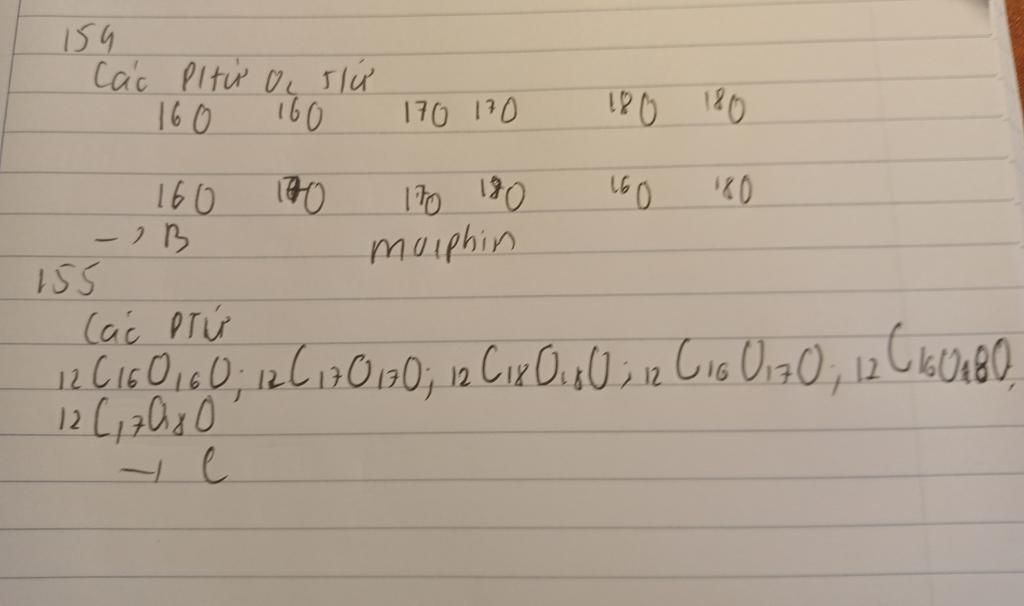 154
Các Pltử O₂ 
160 160 170 170 180 180
160 170 170 180 160 180
-> B morphin
155
Các PTử
12C16O16O; 12C17O17O; 12C18O18O; 12C16O17O; 12C16O18O,
12C17O18O
-> C